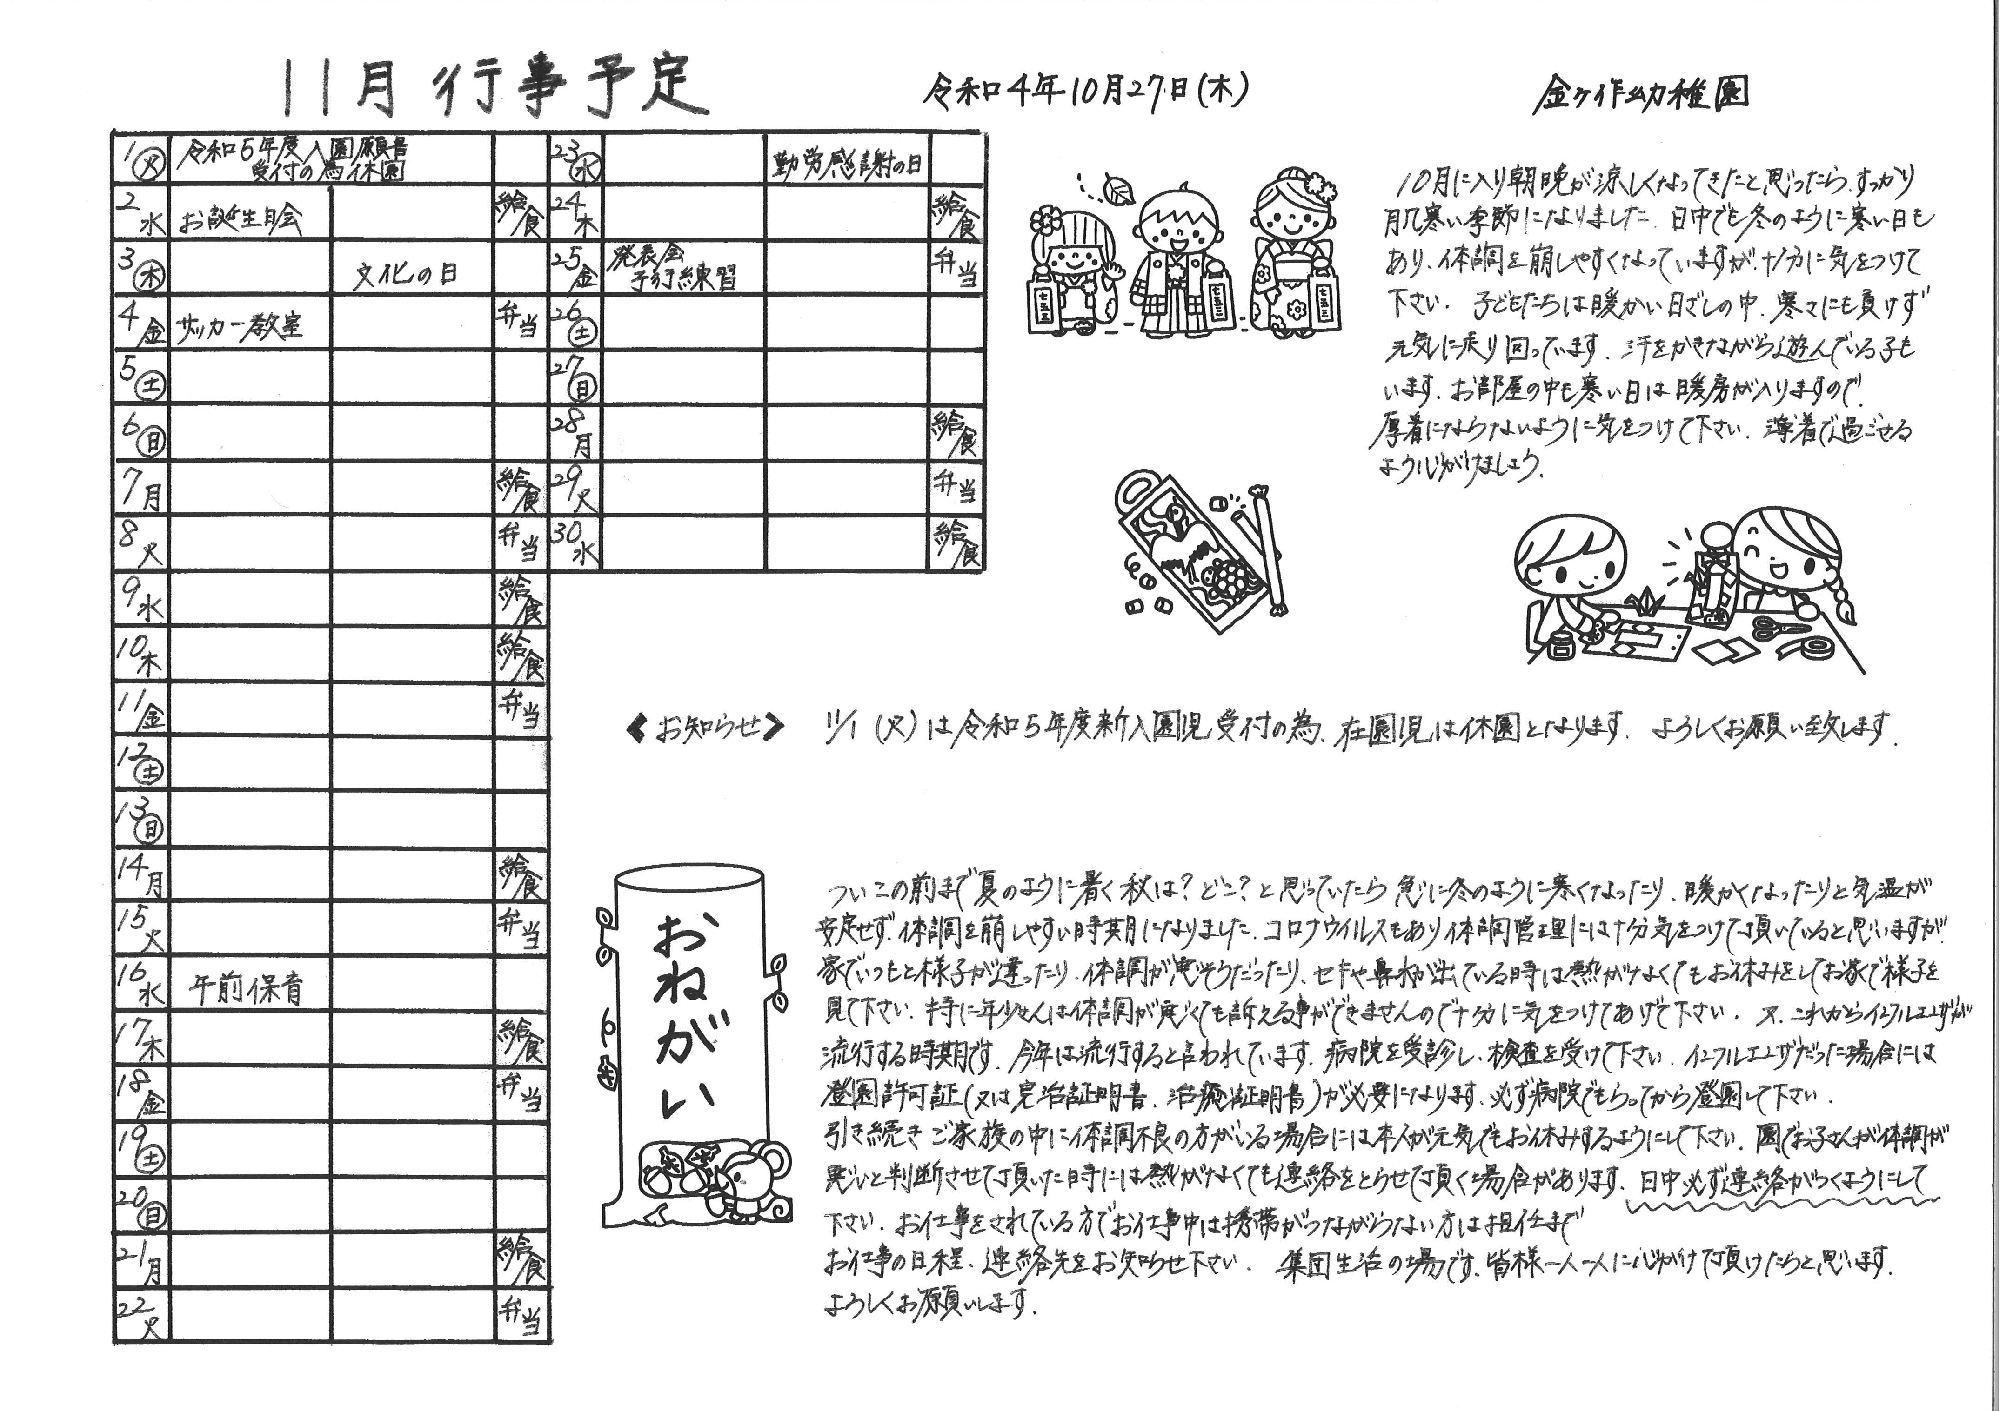 11月 行事予定
令和4年10月27日(木)
金ヶ作幼稚園
1 火 令和5年度入園願書
受付の為休園
2 水 お誕生日会 給食
3 木 文化の日
4 金 サッカー教室 弁当
5 土
6 日
7 月 給食
8 火 弁当
9 水 給食
10 木 給食
11 金 弁当
12 土
13 日
14 月 給食
15 火 弁当
16 水 午前保育
17 木 給食
18 金 弁当
19 土
20 日
21 月 給食
22 火 弁当
23 水 勤労感謝の日
24 木 給食
25 金 発表会
予行練習 弁当
26 土
27 日
28 月 給食
29 火 弁当
30 水 給食
七五三
七五三
七五三
10月に入り朝晩が涼しくなってきたと思ったら、すっかり
肌寒い季節になりました。日中でも冬のように寒い日も
あり、体調を崩しやすくなっていますが、十分に気をつけて
下さい。子どもたちは暖かい日ざしの中、寒さにも負けず
元気に走り回っています。汗をかきながら遊んでいる子も
います。お部屋の中も寒い日は暖房が入りますので、
厚着にならないように気をつけて下さい。薄着で過ごせる
よう心がけましょう。
《お知らせ》 11/1(火)は令和5年度新入園児受付の為、在園児は休園となります。よろしくお願い致します。
おねがい
ついこの前まで夏のように暑く秋は?どこ?と思っていたら急に冬のように寒くなったり、暖かくなったりと気温が
安定せず、体調を崩しやすい時期になりました。コロナウイルスもあり体調管理には十分気をつけて頂いていると思いますが、
家でいつもと様子が違ったり、体調が悪そうだったり、セキや鼻水が出ている時は熱がなくてもお休みをしてお家で様子を
見て下さい。特に年少さんは体調が悪くても訴える事ができませんので十分に気をつけてあげて下さい。又、これからインフルエンザが
流行する時期です。今年は流行すると言われています。病院を受診し、検査を受けて下さい。インフルエンザだった場合には
登園許可証(又は完治証明書、治癒証明書)が必要になります。必ず病院でもらってから登園して下さい。
引き続きご家族の中に体調不良の方がいる場合には本人が元気でもお休みするようにして下さい。園でお子さんが体調が
悪いと判断させて頂いた時には熱がなくても連絡をとらせて頂く場合があります。日中必ず連絡がつくようにして
下さい。お仕事をされている方でお仕事中は携帯がつながらない方は担任まで
お仕事の日程、連絡先をお知らせ下さい。集団生活の場です。皆様一人一人に心がけて頂けたらと思います。
よろしくお願いします。